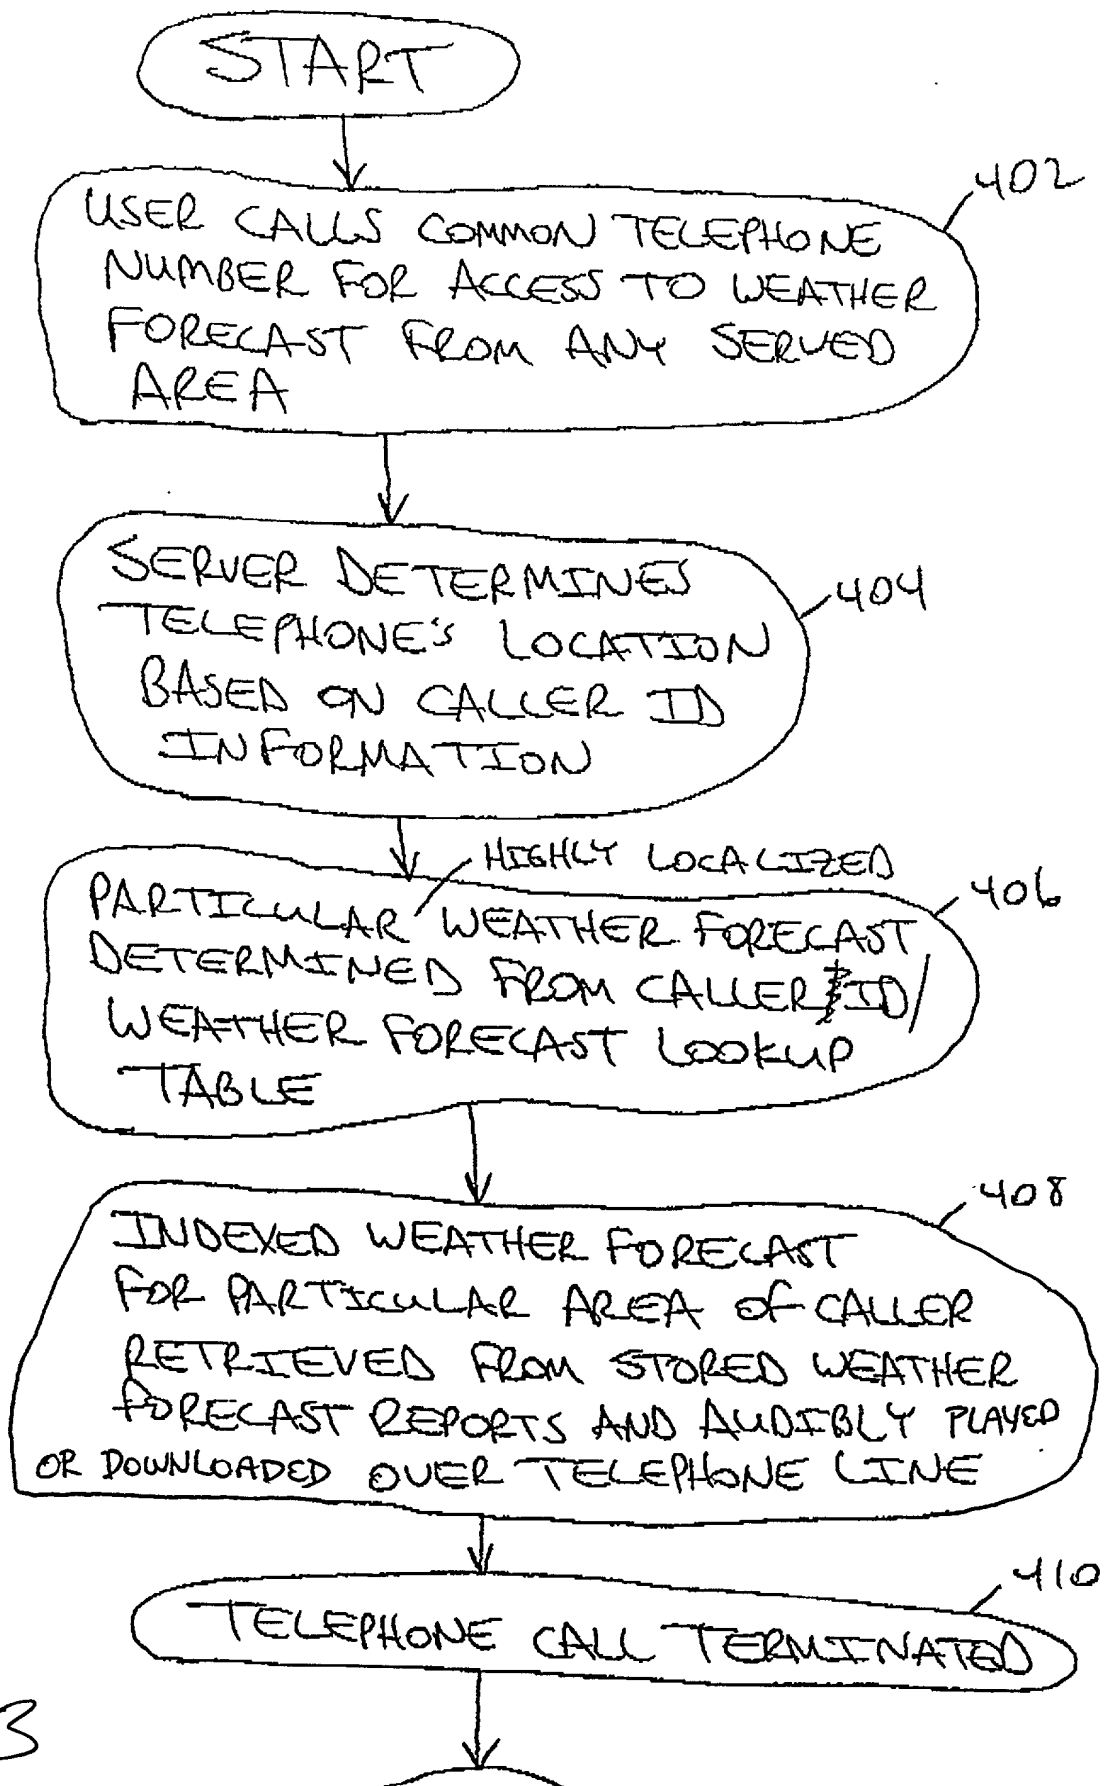 START
402
USER CALLS COMMON TELEPHONE
NUMBER FOR ACCESS TO WEATHER
FORECAST FROM ANY SERVED
AREA
SERVER DETERMINES
404
TELEPHONE'S LOCATION
BASED ON CALLER ID
INFORMATION
HIGHLY LOCALIZED
406
PARTICULAR WEATHER FORECAST
DETERMINED FROM CALLER ID/
WEATHER FORECAST LOOKUP
TABLE
408
INDEXED WEATHER FORECAST
FOR PARTICULAR AREA OF CALLER
RETRIEVED FROM STORED WEATHER
FORECAST REPORTS AND AUDIBLY PLAYED
OR DOWNLOADED OVER TELEPHONE LINE
410
TELEPHONE CALL TERMINATED
3